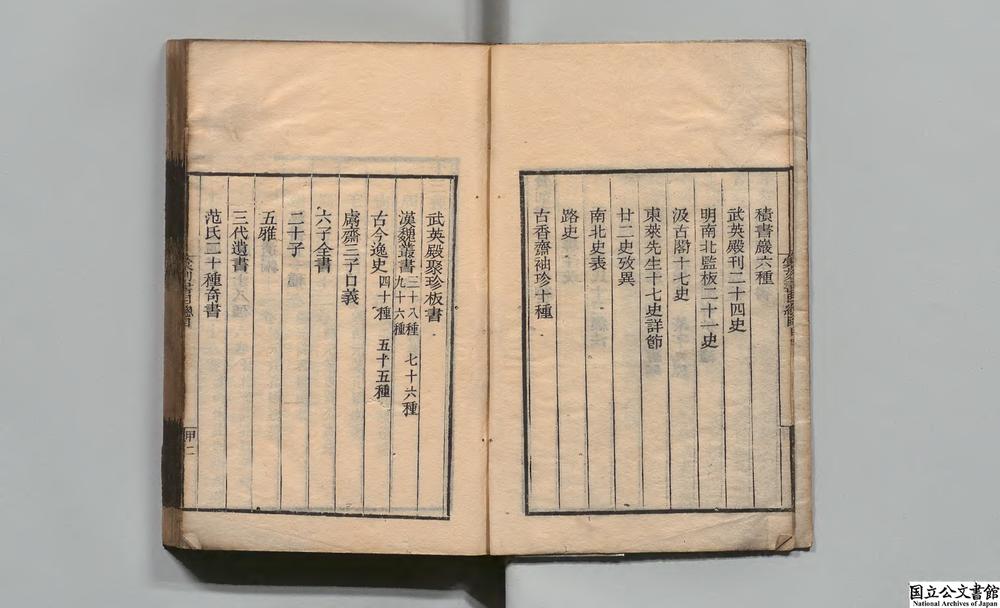 積書巖六種
武英殿刊二十四史
明南北監板二十一史
汲古閣十七史
東萊先生十七史詳節
廿二史攷異
南北史表
路史
古香齋袖珍十種
武英殿聚珍板書
漢魏叢書 三十八種 九十六種 七十六種
古今逸史 四十種 五十五種
鬳齋三子口義
六子全書
二十子
五雅
三代遺書
范氏二十種奇書
甲二
国立公文書館
National Archives of Japan